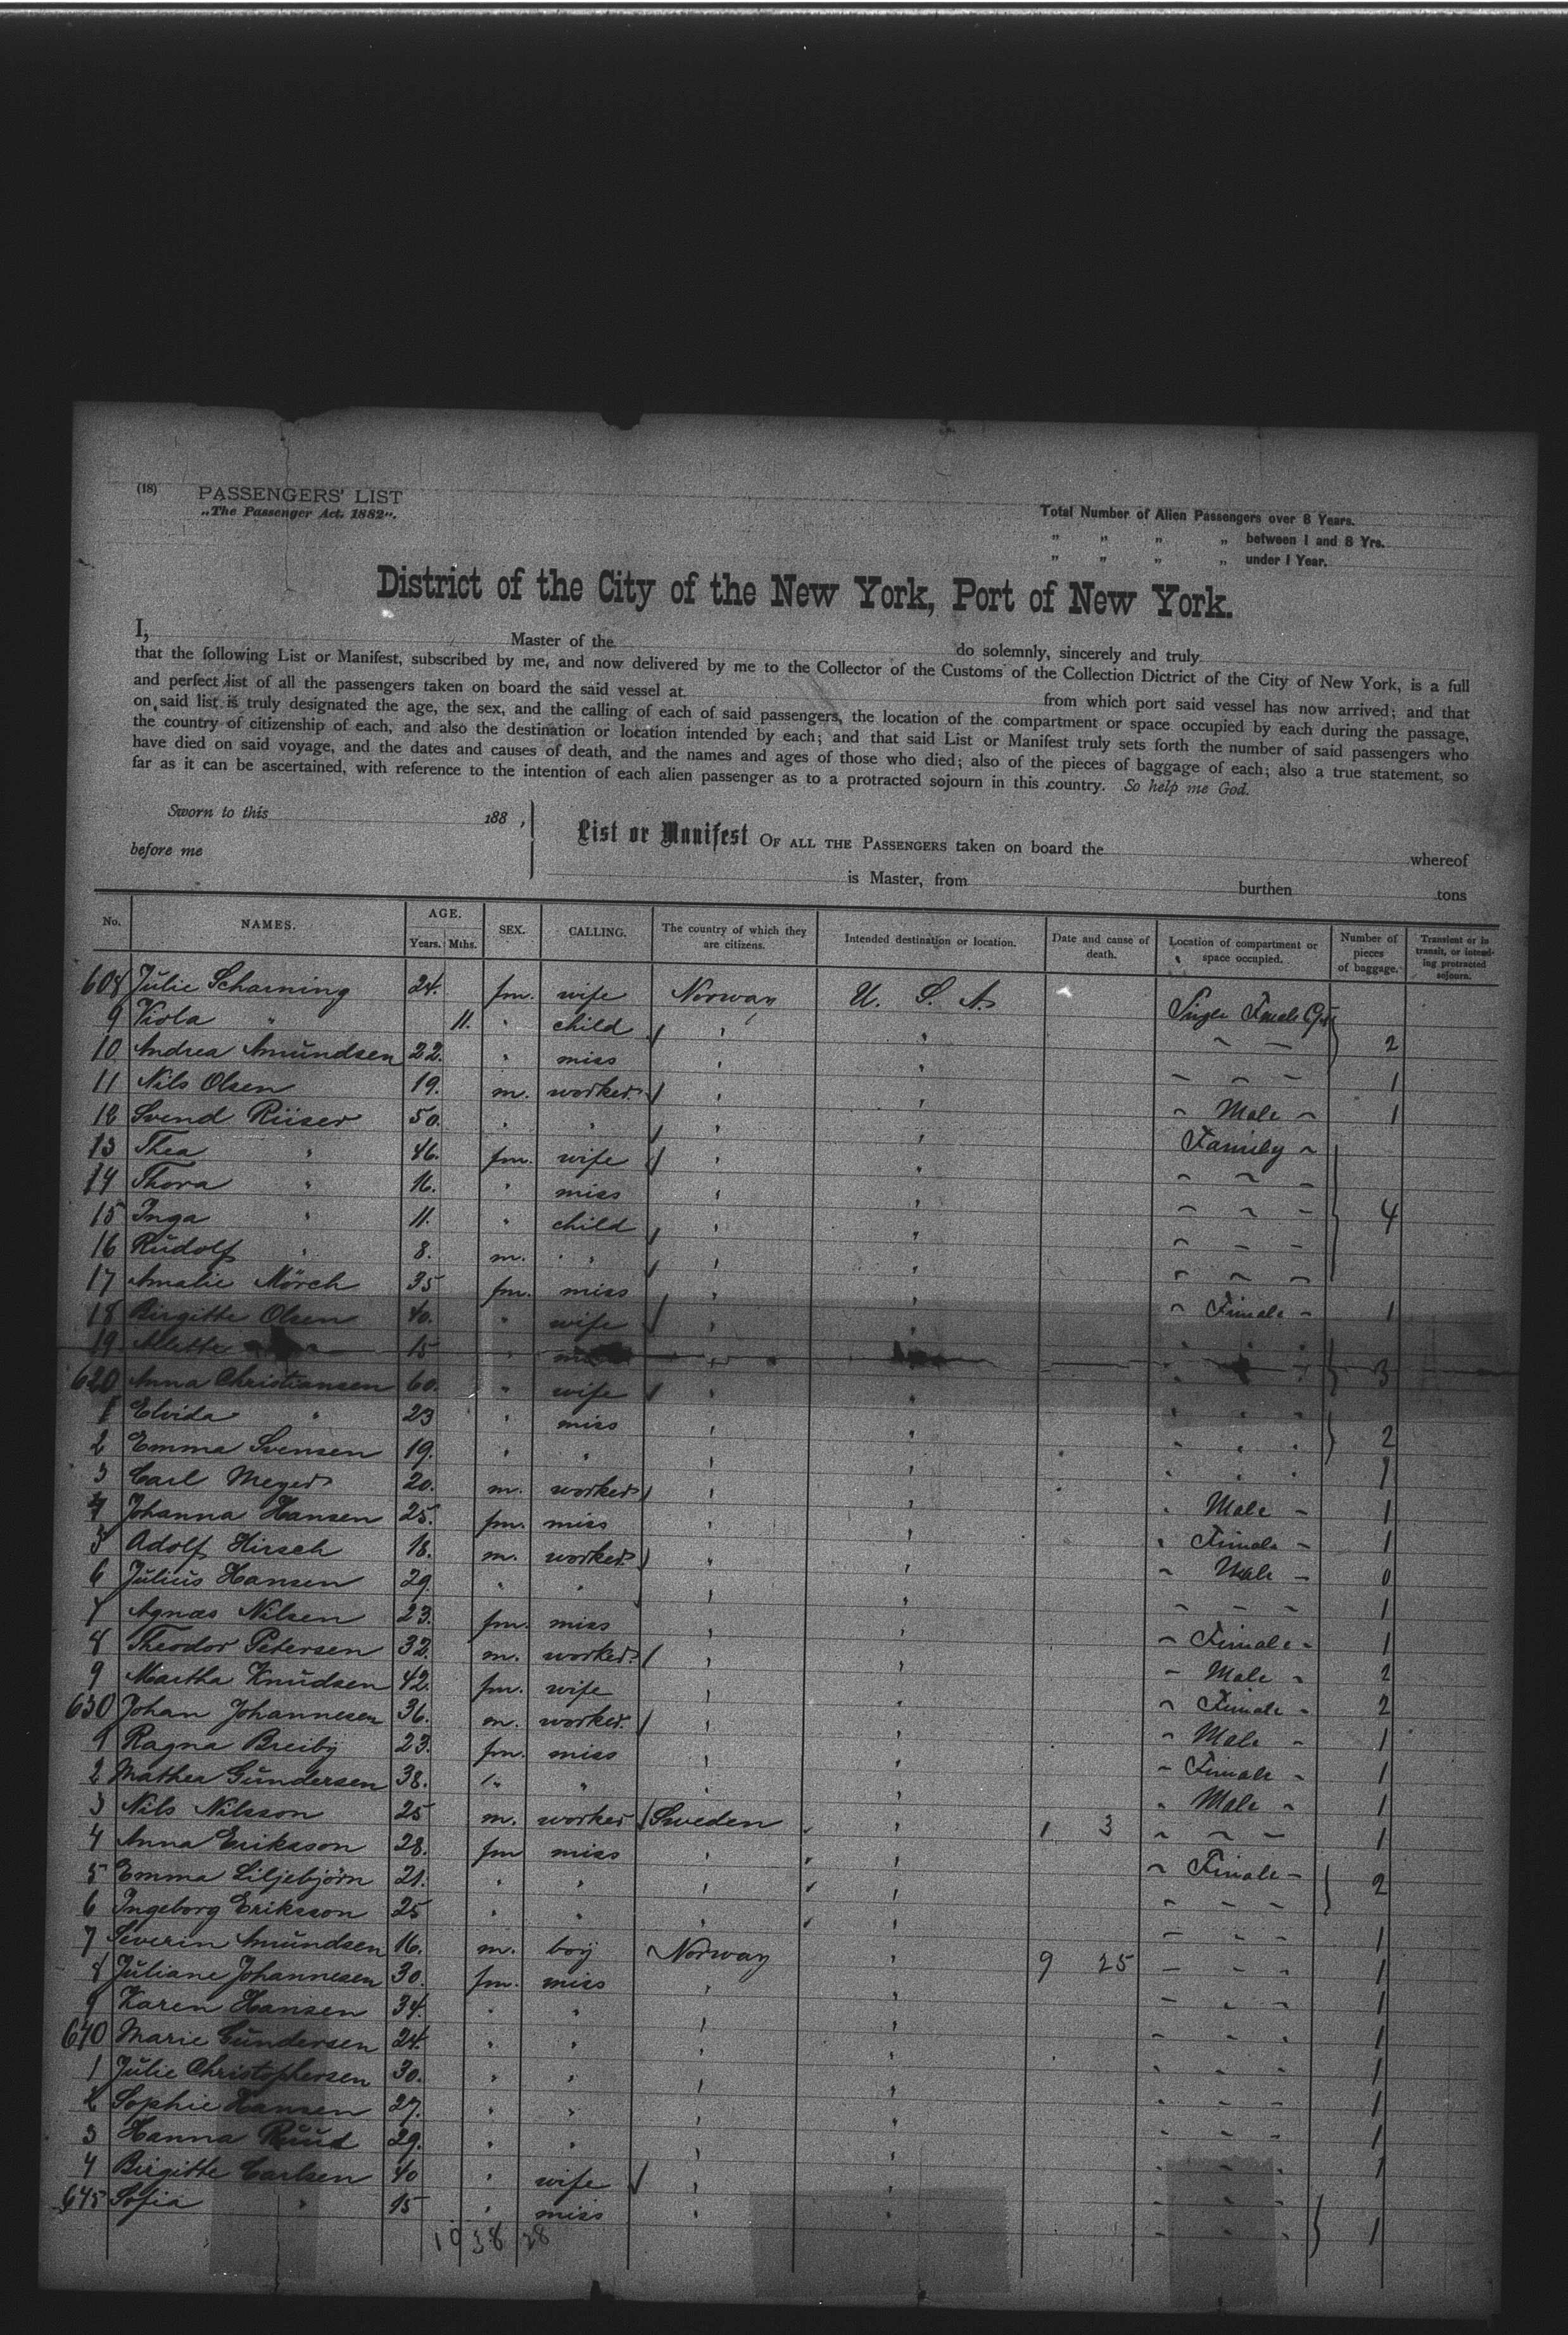 (18) PASSENGERS' LIST
„The Passenger Act. 1882".
Total Number of Alien Passengers over 8 Years.
„ „ „ „ between 1 and 8 Yrs.
„ „ „ „ under 1 Year.
District of the City of the New York, Port of New York.
I, Master of the do solemnly, sincerely and truly
that the following List or Manifest, subscribed by me, and now delivered by me to the Collector of the Customs of the Collection District of the City of New York, is a full
and perfect list of all the passengers taken on board the said vessel at from which port said vessel has now arrived; and that
on said list is truly designated the age, the sex, and the calling of each of said passengers, the location of the compartment or space occupied by each during the passage,
the country of citizenship of each, and also the destination or location intended by each; and that said List or Manifest truly sets forth the number of said passengers who
have died on said voyage, and the dates and causes of death, and the names and ages of those who died; also of the pieces of baggage of each; also a true statement, so
far as it can be ascertained, with reference to the intention of each alien passenger as to a protracted sojourn in this country. So help me God.
Sworn to this 188 ,
before me
List or Manifest OF ALL THE PASSENGERS taken on board the whereof
is Master, from burthen tons
No. NAMES. AGE. Years. Mths. SEX. CALLING. The country of which they are citizens. Intended destination or location. Date and cause of death. Location of compartment or space occupied. Number of pieces of baggage. Transient or in transit, or intending protracted sojourn.
608 Julie Scharning 24. fm. wife Norway U. S. A. Single Female
9 Viola " 11. " child " " 2
10 Andrea Amundsen 22. " miss " " 1
11 Nils Olsen 19. m. worker " " Male 1
12 Svend Riiser 50. " " " " Family
13 Thea " 46. fm. wife " "
14 Thora " 16. " miss " " 4
15 Inga " 11. " child " "
16 Rudolf " 8. m. " " "
17 Amalie Mörch 35 fm. miss " " Female 1
18 Birgitte Olsen 40. " wife " "
19 Alette 15 " " " 3
620 Anna Christiansen 60. " wife " "
1 Elvida " 23 " miss " " 2
2 Emma Svensen 19. " " " " 1
3 Carl Meyer 20. m. worker " " Male 1
4 Johanna Hansen 25. fm. miss " " Female 1
5 Adolf Hirsch 18. m. worker " " Male 0
6 Julius Hansen 29 " " " " 1
7 Agnes Nilsen 23. fm. miss " " Female 1
8 Theodor Petersen 32. m. worker " " Male 2
9 Martha Knudsen 42. fm. wife " " Female 2
630 Johan Johannesen 36. m. worker " " Male 1
1 Ragna Breiby 23. fm. miss " " Female 1
2 Mathea Gundersen 38. " " " " Male 1
3 Nils Nilsson 25 m. worker Sweden " 1 3 1
4 Anna Eriksson 28. fm miss " " Female
5 Emma Liljebjörn 21. " " " " 2
6 Ingeborg Eriksson 25 " " " "
7 Severin Amundsen 16. m. boy Norway " 9 25 1
8 Juliane Johannesen 30. fm. miss " " 1
9 Karen Hansen 34. " " " " 1
640 Marie Gundersen 24. " " " " 1
1 Julie Christophersen 30. " " " " 1
2 Sophie Hansen 27. " " " " 1
3 Hanna Ruud 29. " " " " 1
4 Birgitte Carlsen 40 " wife " " 1
645 Sofia " 15 " miss " " 1
10 38 28